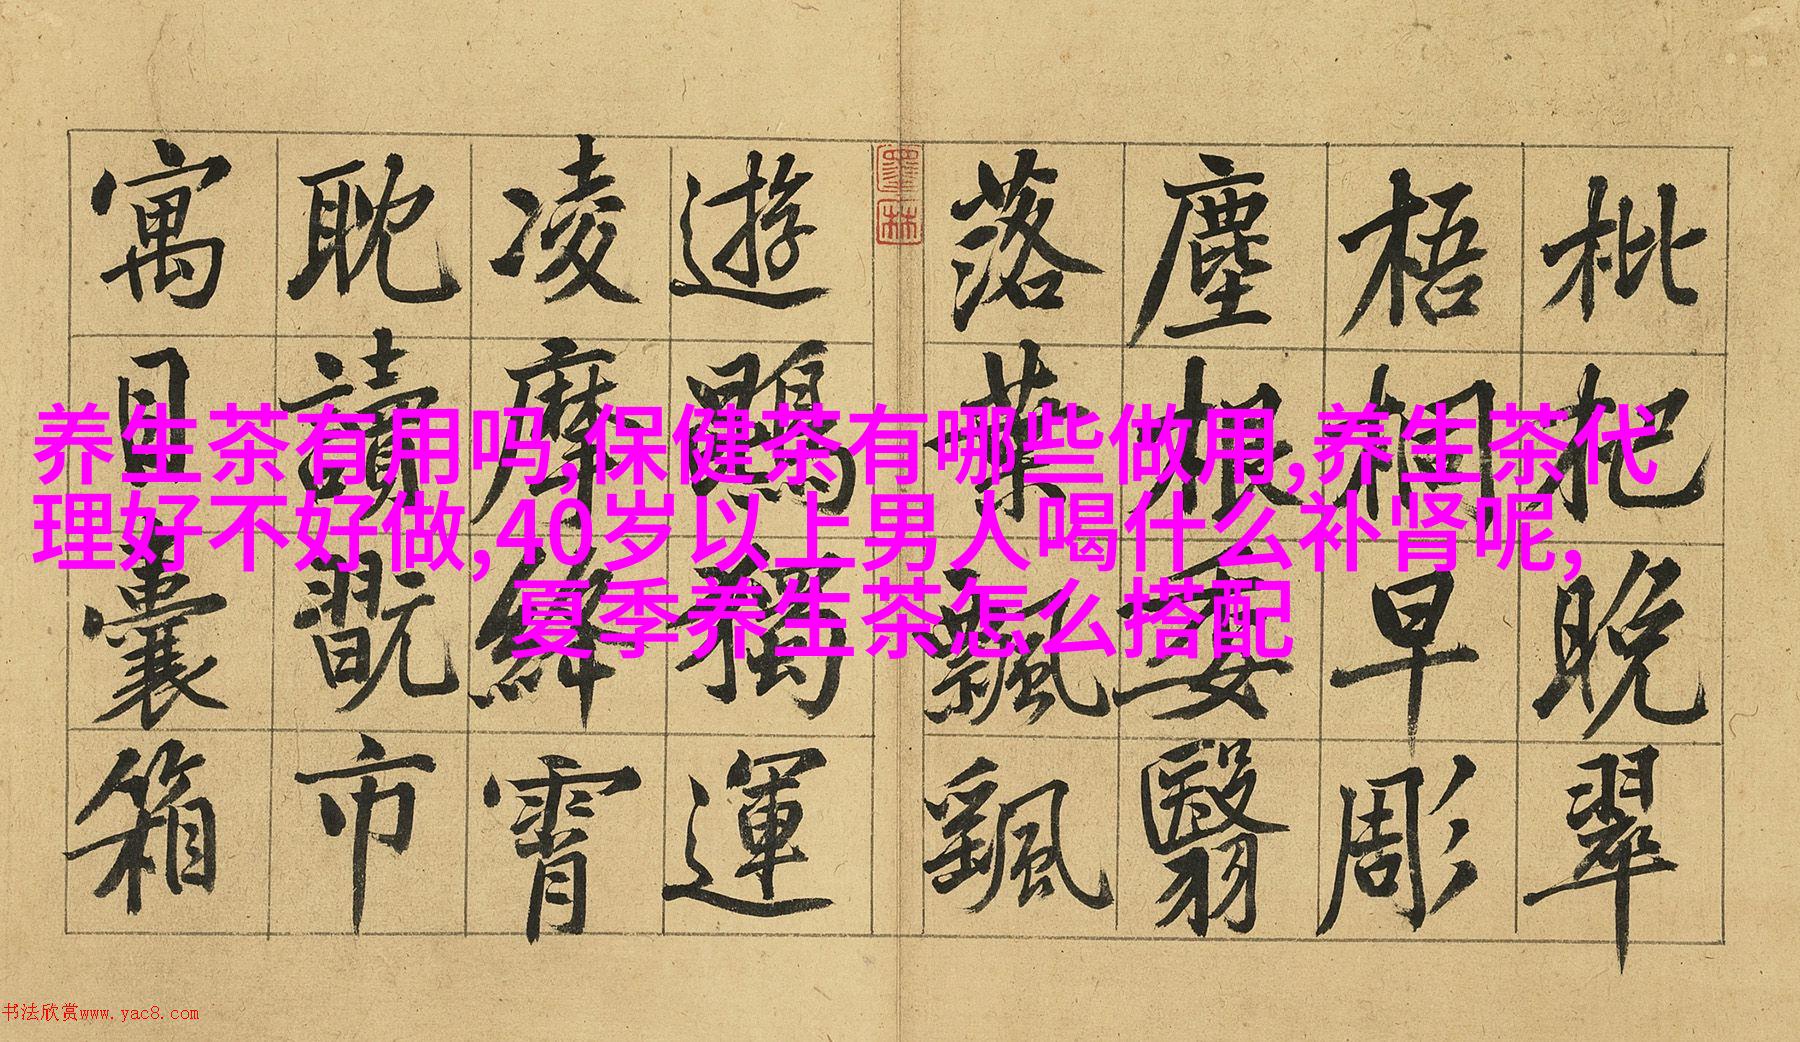 枇杷晚翠
梧桐早彫
塵根委翳
落葉飄颻
遊鵾獨運
凌摩絳霄
耽讀翫市
寓目囊箱
墨林
养生茶有用吗,保健茶有哪些做用,养生茶代
理好不好做,40岁以上男人喝什么补肾呢,
夏季养生茶怎么搭配
书法欣赏www.yac8.com